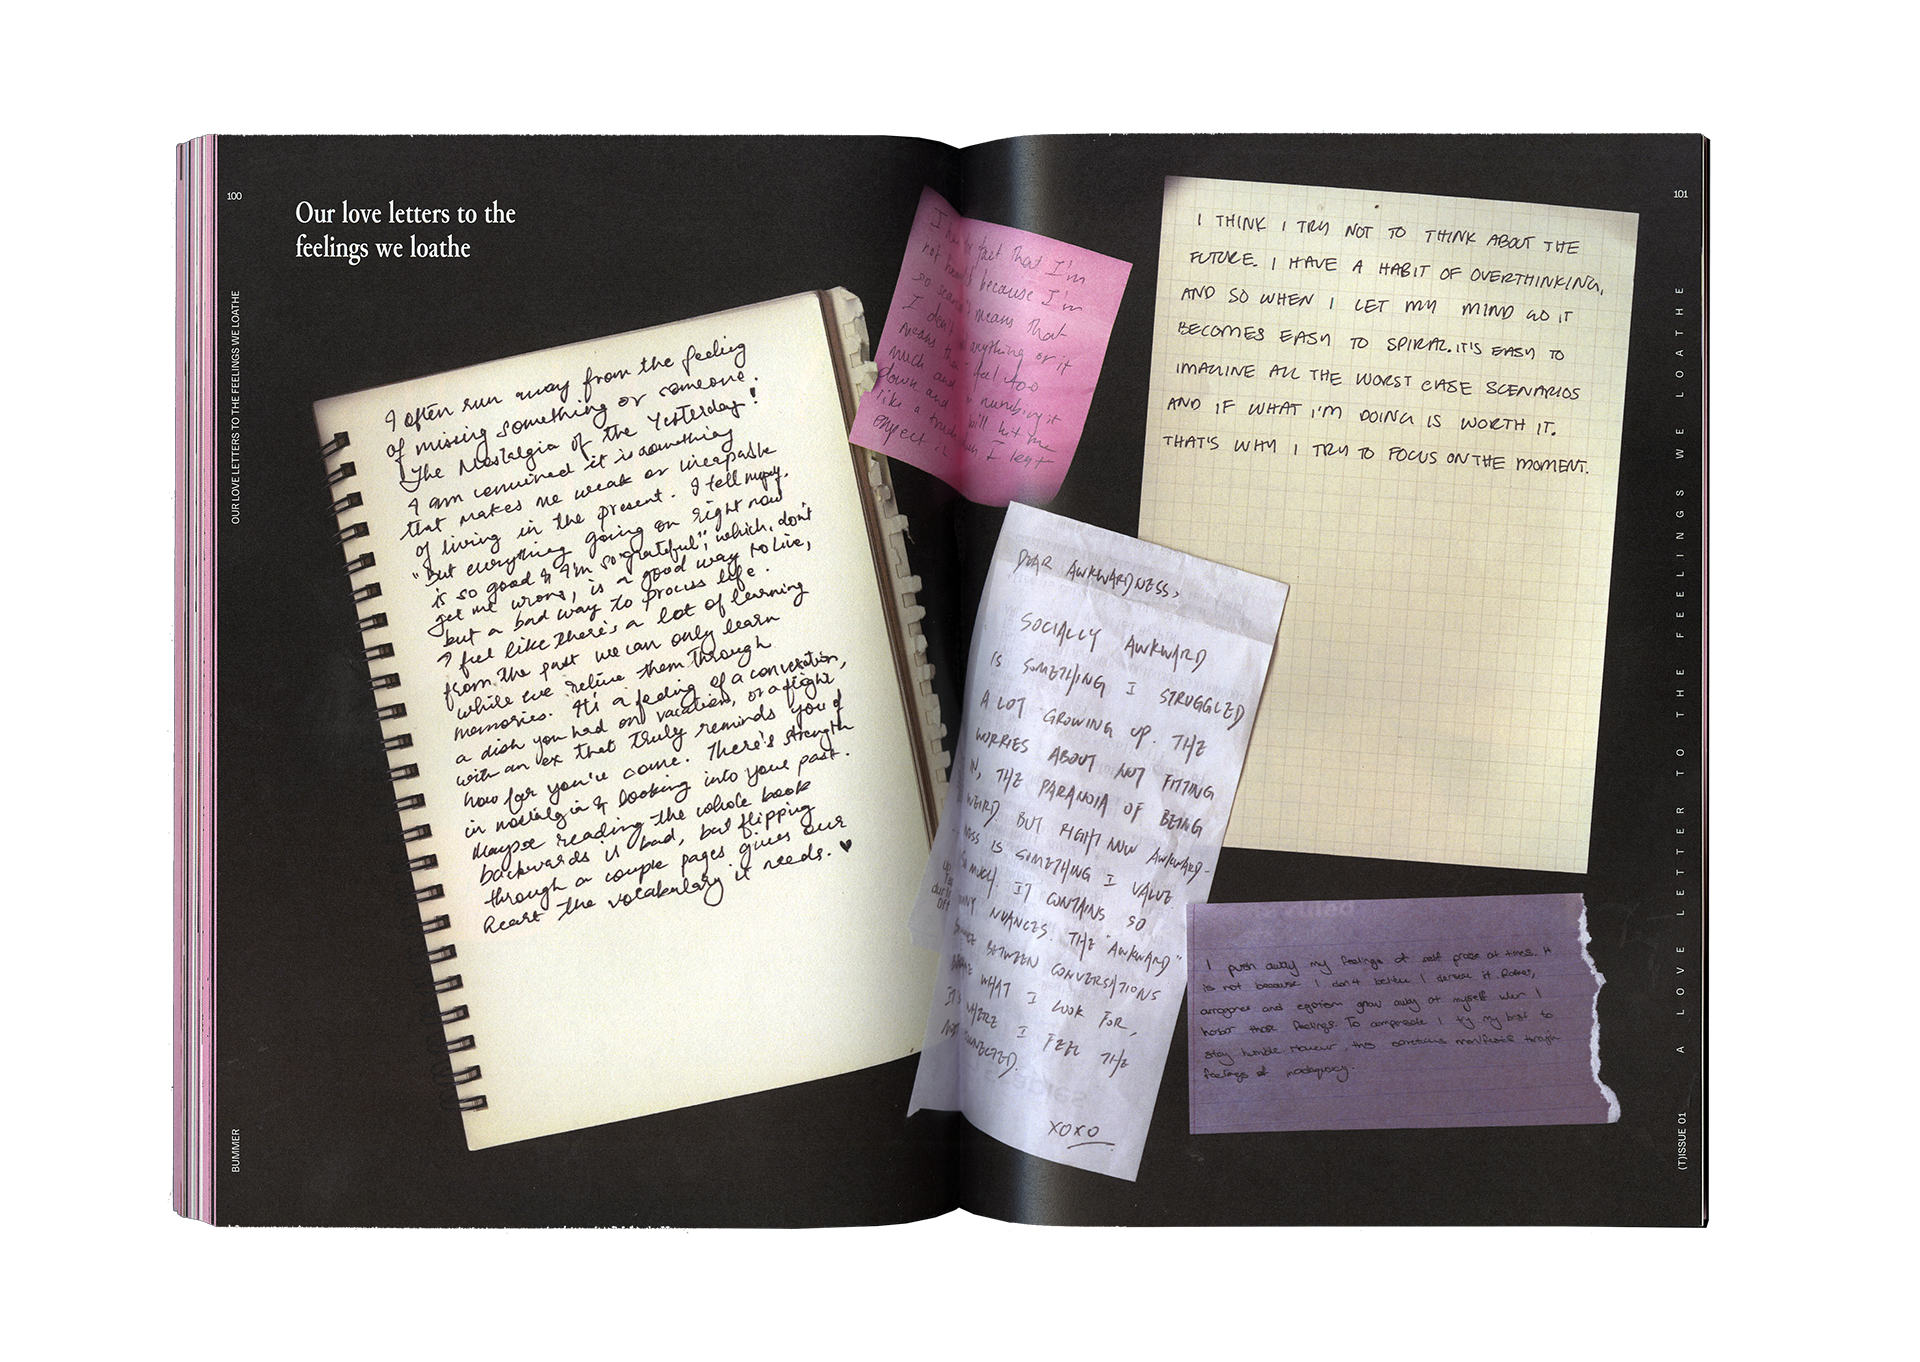 100
Our love letters to the
feelings we loathe
OUR LOVE LETTERS TO THE FEELINGS WE LOATHE
BUMMER
I often run away from the feeling
of missing something or someone.
The Nostalgia of the Yesterday!
I am convinced it is something
that makes me weak or incapable
of living in the present. I tell
"But everything going on right now
is so good & I'm so grateful", which, don't
get me wrong, is a good way to live,
but a bad way to process life.
I feel like there's a lot of learning
from the past we can only learn
while we relive them through
memories. It's a feeling of a conversation,
a dish you had on vacation, or a fight
with an ex that truly reminds you of
how far you've come. There's strength
in nostalgia & looking into your past.
Maybe reading the whole book
backwards is bad, but flipping
through a couple pages gives our
heart the vocabulary it needs. ♥
I fact that I'm
not because I'm
so means that
I don't anything or it
means feel too
much and numbing it
down and will hit me
like a truck when I least
expect it
DEAR AWKWARDNESS,
SOCIALLY AWKWARD
IS SOMETHING I STRUGGLED
A LOT GROWING UP. THE
WORRIES ABOUT NOT FITTING
IN, THE PARANOIA OF BEING
WEIRD. BUT RIGHT NOW AWKWARD-
NESS IS SOMETHING I VALUE
SO MUCH. IT CONTAINS SO
MANY NUANCES. THE "AWKWARD"
BETWEEN CONVERSATIONS
WHAT I LOOK FOR,
IT'S WHERE I FEEL THE
MOST CONNECTED.
XOXO
101
I THINK I TRY NOT TO THINK ABOUT THE
FUTURE. I HAVE A HABIT OF OVERTHINKING,
AND SO WHEN I LET MY MIND GO IT
BECOMES EASY TO SPIRAL. IT'S EASY TO
IMAGINE ALL THE WORST CASE SCENARIOS
AND IF WHAT I'M DOING IS WORTH IT.
THAT'S WHY I TRY TO FOCUS ON THE MOMENT.
I push away my feelings of self praise at times. It
is not because I don't believe I deserve it. Rather,
arrogance and egotism grow away at myself when I
harbor those feelings. To compensate I try my best to
stay humble. However, this sometimes manifests through
feelings of inadequacy.
A LOVE LETTER TO THE FEELINGS WE LOATHE
(T)ISSUE 01